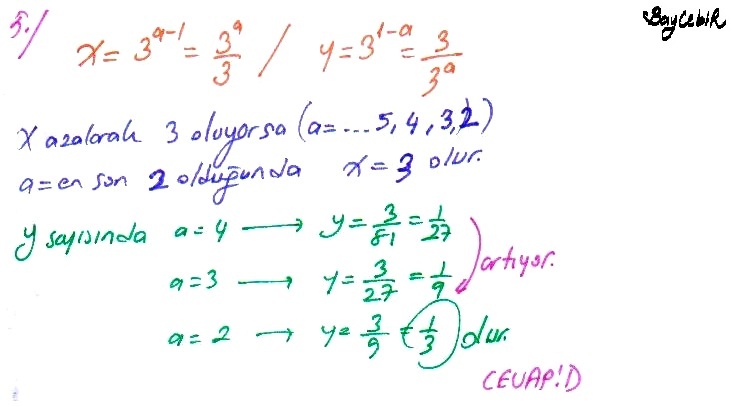 BayCebiR
5./ x = 3^(a-1) = 3^a/3 / y = 3^(1-a) = 3/3^a
X azalarak 3 oluyorsa (a = ... 5, 4, 3, 2)
a = en son 2 olduğunda x = 3 olur.
y sayısında a = 4 → y = 3/81 = 1/27
a = 3 → y = 3/27 = 1/9 artıyor.
a = 2 → y = 3/9 = 1/3 olur.
CEVAP!D